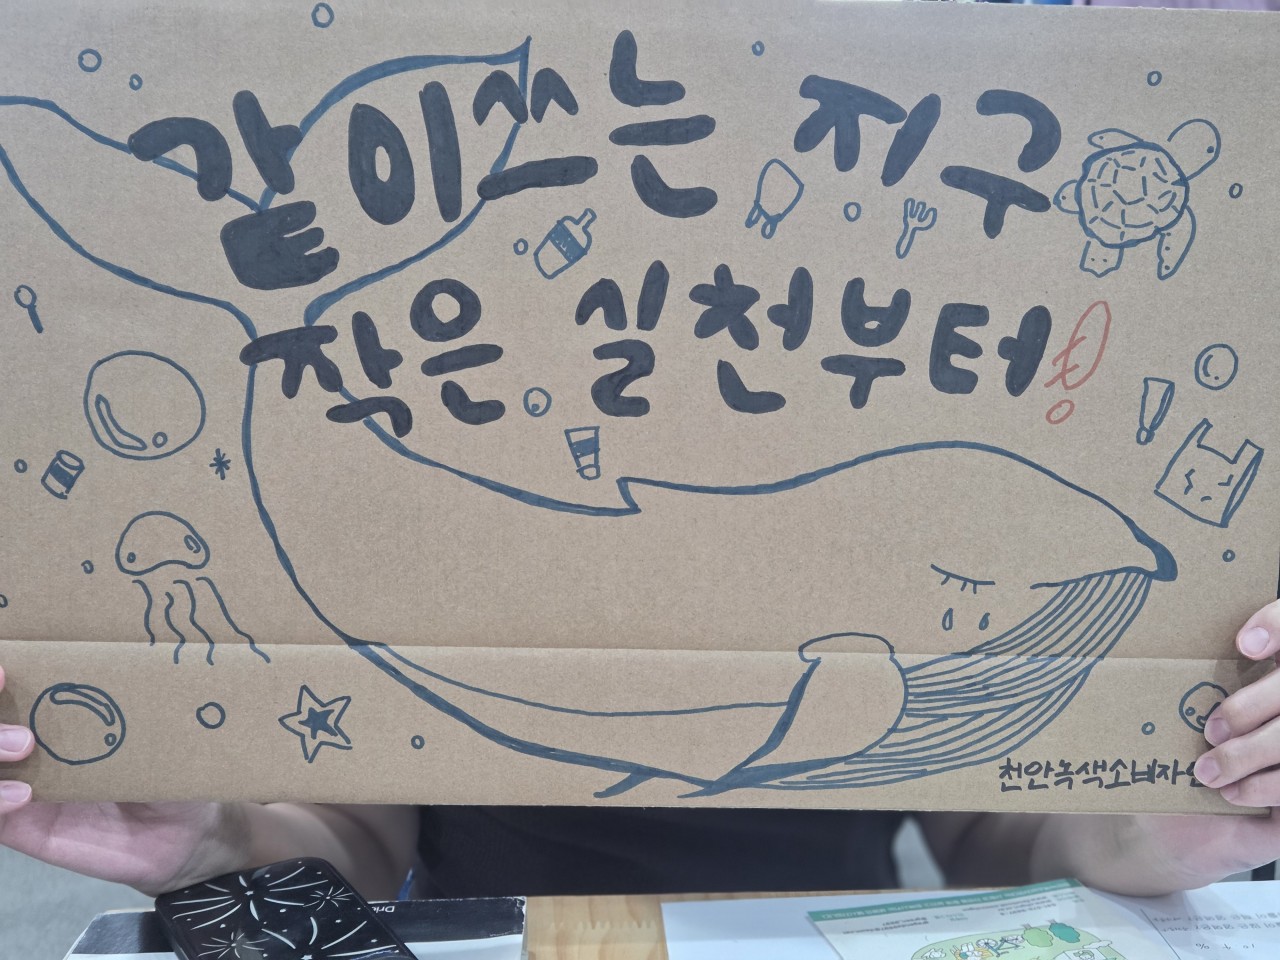 같이쓰는 지구
작은 실천부터!
천안녹색소비자연